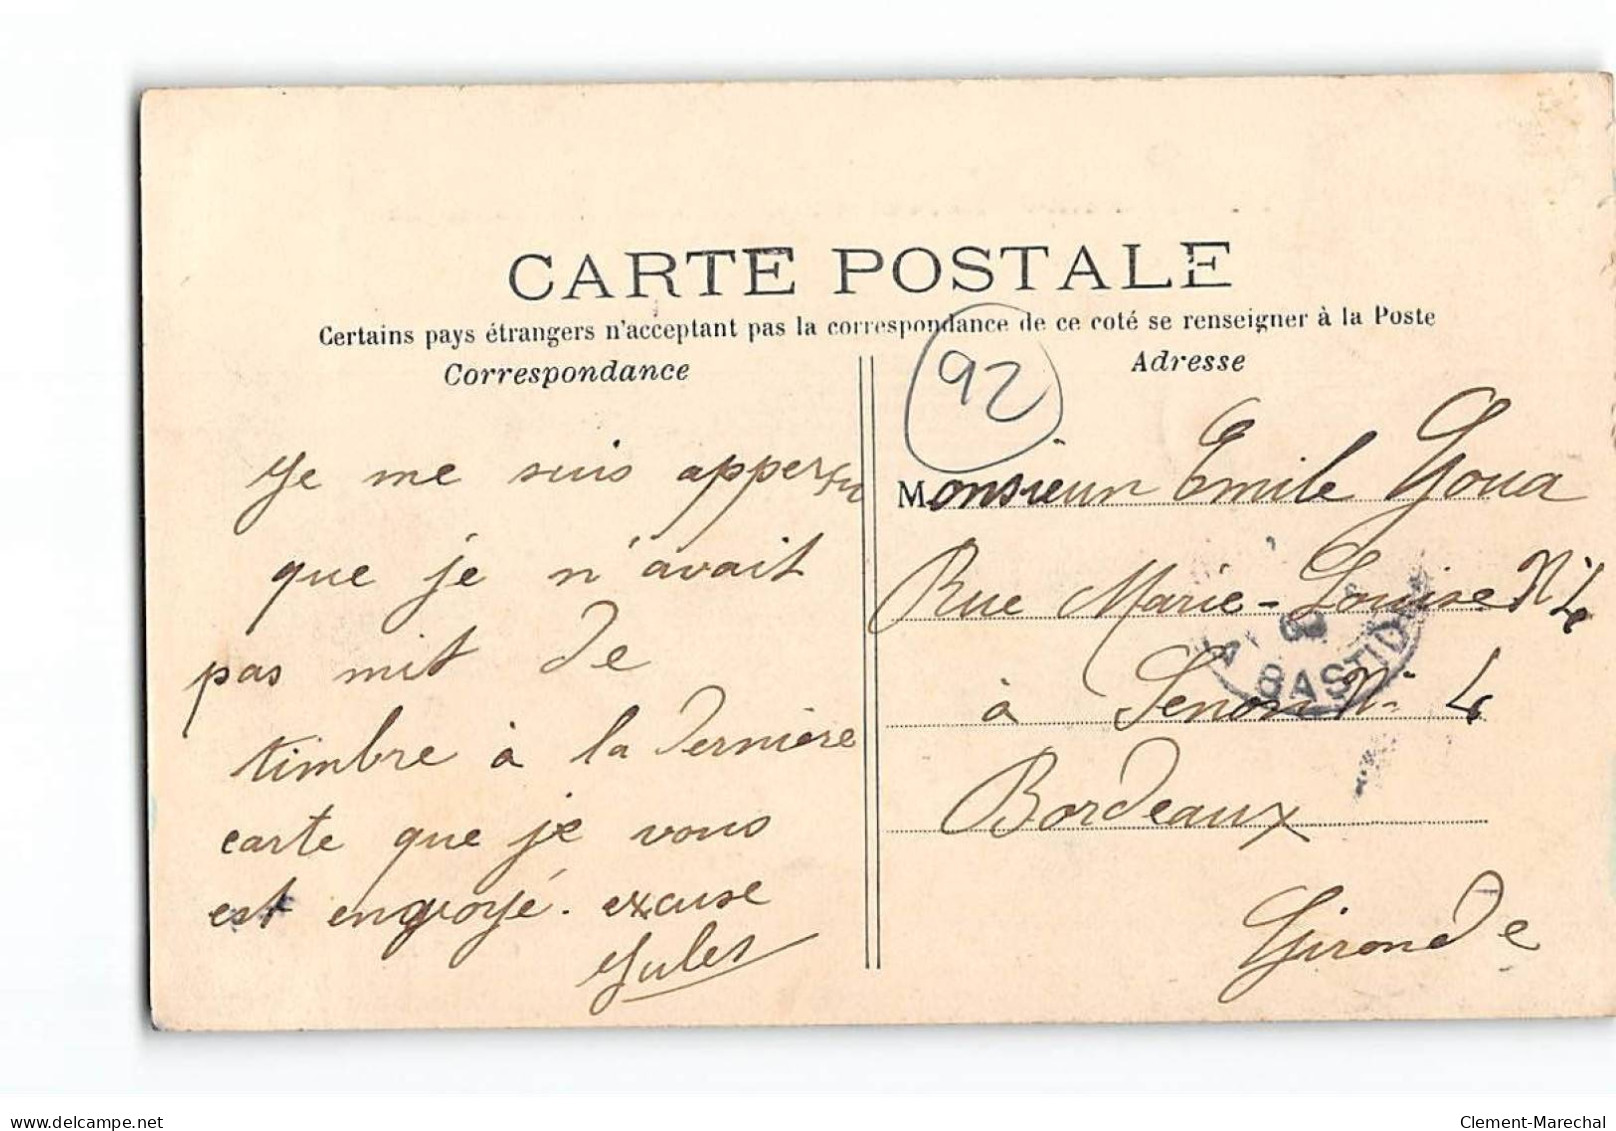 CARTE POSTALE
Certains pays étrangers n'acceptent pas la correspondance de ce coté se renseigner à la Poste
Correspondance
Je me suis apperçu
que je n'avait
pas mit de
timbre à la dernière
carte que je vous
est envoyé. excuse
Jules
Adresse
92
Monsieur Emile Goua
Rue Marie-Louise N° 4
à Senon N° 4
Bordeaux
Gironde
LA BASTIDE
delcampe.net
Clement-Marechal